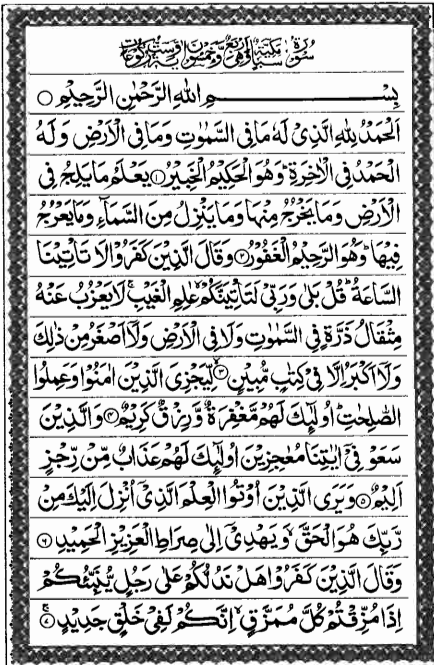 سُوْرَةُ سَبَاٍ مَّكِّيَّةٌ وَّهِيَ اَرْبَعٌ وَّخَمْسُوْنَ اٰيَةً وَّسِتُّ رُكُوْعَاتٍ
بِسْمِ اللّٰهِ الرَّحْمٰنِ الرَّحِيْمِ ○
اَلْحَمْدُ لِلّٰهِ الَّذِیْ لَهٗ مَا فِی السَّمٰوٰتِ وَمَا فِی الْاَرْضِ وَلَهُ
الْحَمْدُ فِی الْاٰخِرَةِ ؕ وَهُوَ الْحَكِیْمُ الْخَبِیْرُ ﴿۱﴾ یَعْلَمُ مَا یَلِجُ فِی
الْاَرْضِ وَمَا یَخْرُجُ مِنْهَا وَمَا یَنْزِلُ مِنَ السَّمَآءِ وَمَا یَعْرُجُ
فِیْهَا ؕ وَهُوَ الرَّحِیْمُ الْغَفُوْرُ ﴿۲﴾ وَقَالَ الَّذِیْنَ كَفَرُوْا لَا تَاْتِیْنَا
السَّاعَةُ ؕ قُلْ بَلٰی وَرَبِّیْ لَتَاْتِیَنَّكُمْ ۙ عٰلِمِ الْغَیْبِ ۚ لَا یَعْزُبُ عَنْهُ
مِثْقَالُ ذَرَّةٍ فِی السَّمٰوٰتِ وَلَا فِی الْاَرْضِ وَلَاۤ اَصْغَرُ مِنْ ذٰلِكَ
وَلَاۤ اَكْبَرُ اِلَّا فِیْ كِتٰبٍ مُّبِیْنٍ ﴿۳﴾ لِّیَجْزِیَ الَّذِیْنَ اٰمَنُوْا وَعَمِلُوا
الصّٰلِحٰتِ ؕ اُولٰٓئِكَ لَهُمْ مَّغْفِرَةٌ وَّرِزْقٌ كَرِیْمٌ ﴿۴﴾ وَالَّذِیْنَ
سَعَوْ فِیْۤ اٰیٰتِنَا مُعٰجِزِیْنَ اُولٰٓئِكَ لَهُمْ عَذَابٌ مِّنْ رِّجْزٍ
اَلِیْمٌ ﴿۵﴾ وَیَرَی الَّذِیْنَ اُوْتُوا الْعِلْمَ الَّذِیْۤ اُنْزِلَ اِلَیْكَ مِنْ
رَّبِّكَ هُوَ الْحَقَّ ۙ وَیَهْدِیْۤ اِلٰی صِرَاطِ الْعَزِیْزِ الْحَمِیْدِ ﴿۶﴾
وَقَالَ الَّذِیْنَ كَفَرُوْا هَلْ نَدُلُّكُمْ عَلٰی رَجُلٍ یُّنَبِّئُكُمْ
اِذَا مُزِّقْتُمْ كُلَّ مُمَزَّقٍ ۙ اِنَّكُمْ لَفِیْ خَلْقٍ جَدِیْدٍ ﴿۷﴾ۚ